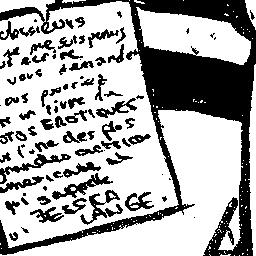 Messieurs
je me suis permis
écrire
vous demander
vous pourriez
un livre de
PHOTOS EROTIQUES
l'une des plus
grandes actrices
américaine et
qui s'appelle
JESSICA
LANGE.